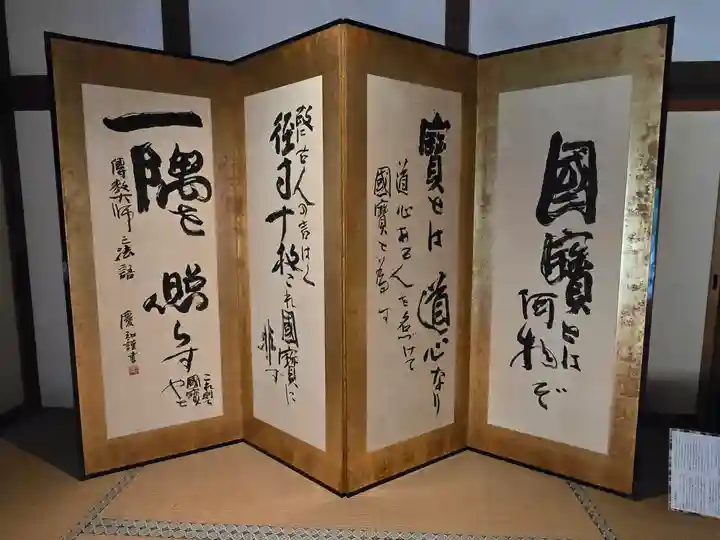 國寶とは
何物ぞ
寶とは道心なり
道心ある人を名づけて
國寶と為す
故に古人の言はく
径寸十枚これ國寶に
非ず
一隅を
照らす
これ則ち
國寶
やと
傳教大師之法語